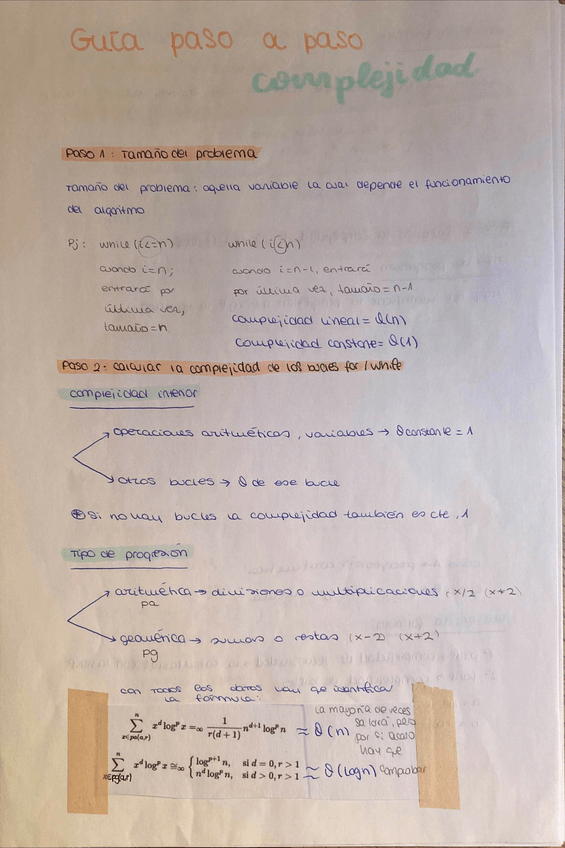 Guía paso a paso
complejidad
Paso 1: Tamaño del problema
Tamaño del problema: aquella variable la cual depende el funcionamiento
del algoritmo
Pj: while (i<=n)
cuando i=n;
entrará por
última vez;
tamaño=n
while (i<n)
cuando i=n-1, entrará
por última vez, tamaño=n-1
complejidad lineal = θ(n)
complejidad constante = θ(1)
Paso 2: calcular la complejidad de los bucles for/while
complejidad interior
operaciones aritméticas, variables → θ constante = 1
otros bucles → θ de ese bucle
* Si no hay bucles la complejidad también es cte, 1
Tipo de progresión
aritmética → divisiones o multiplicaciones (x/2) (x*2)
pa
geométrica → sumas o restas (x-2) (x+2)
pg
con todos los datos hay que identificar
la fórmula:
∑_{x∈pa(a,r)}^{n} x^d log^p x =_∞ \frac{1}{r(d+1)} n^{d+1} log^p n ≈ θ(n)
∑_{x∈pg(a,r)}^{n} x^d log^p x ≅_∞ { log^{p+1} n, si d = 0, r > 1
n^d log^p n, si d > 0, r > 1 ≈ θ(log n)
la mayoría de veces
será, pero
por si acaso
hay que
comprobar